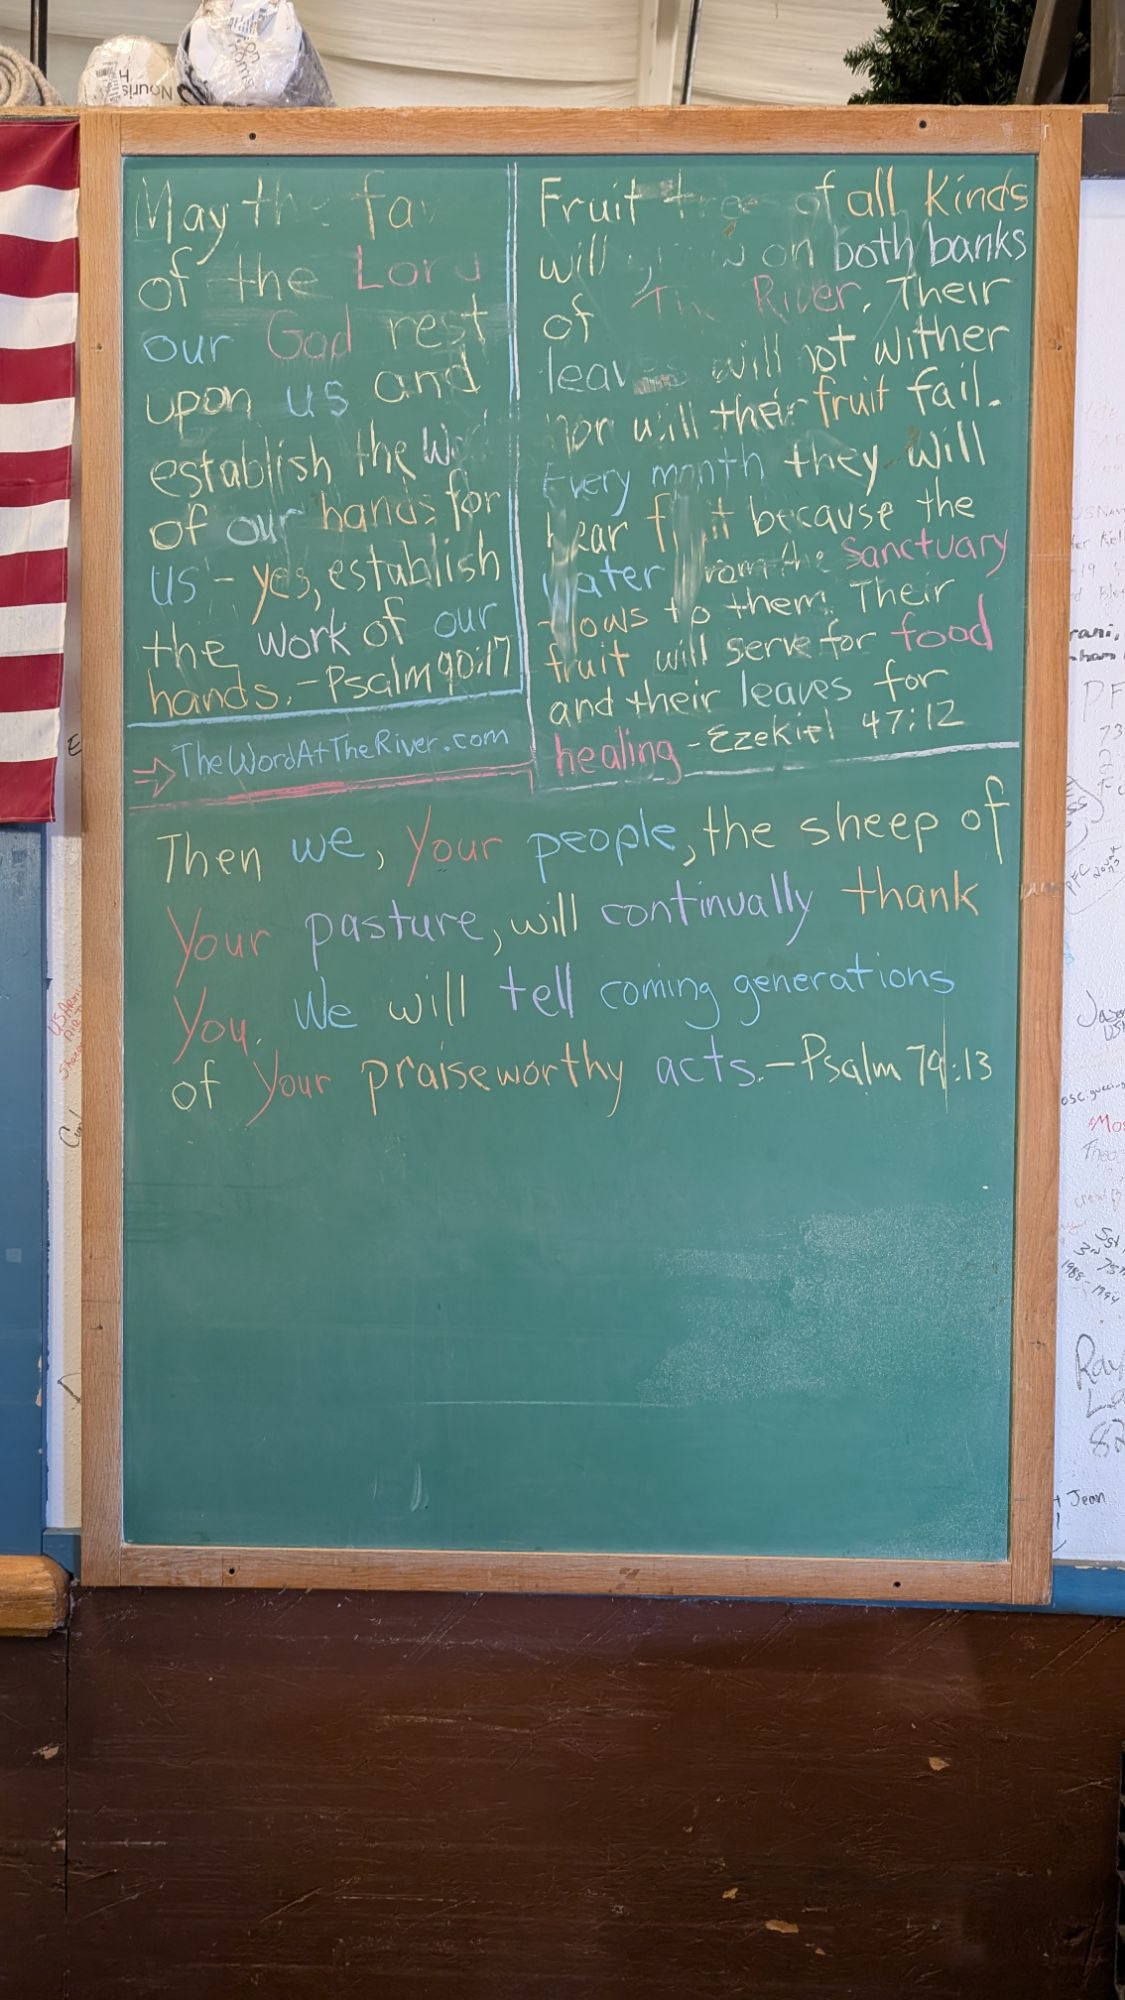 May the fa
of the Lord
our God rest
upon us and
establish the Wo
of our hands for
us - yes, establish
the work of our
hands. - Psalm 90:17
TheWordAtTheRiver.com
Fruit tree of all Kinds
will on both banks
of The River. Their
leav will not wither
nor will their fruit fail.
Every month they will
bear f it because the
water from the Sanctuary
flows to them. Their
fruit will serve for food
and their leaves for
healing - Ezekiel 47:12
Then we, Your people, the sheep of
Your pasture, will continually thank
You. We will tell coming generations
of Your praiseworthy acts. - Psalm 79:13
Jean